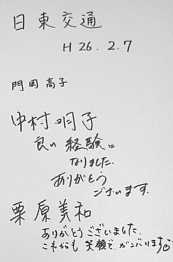 日東交通
H 26. 2. 7
門岡高子
中村明子
良い経験に
なりました。
ありがとう
ございます。
栗原美和
ありがとうございました。
これからも笑顔で、ガンバります